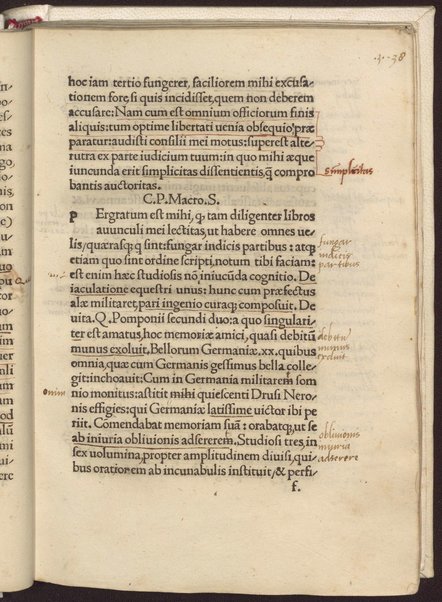 hoc iam tertio fungerer, faciliorem mihi excusa-
tionem fore, si quis incidisset, quem non deberem
accusare: Nam cum est omnium officiorum finis
aliquis: tum optime libertati uenia obsequio præ
paratur: audisti consilii mei motus: superest alte-
rutra ex parte iudicium tuum: in quo mihi æque
iucunda erit simplicitas dissentientis, ꝙ compro
simplicitas
bantis auctoritas.
C. P. Macro. S.
P Ergratum est mihi, ꝙ tam diligenter libros
auunculi mei lectitas, ut habere omnes ue-
lis, quærasqꝫ qui sint: fungar indicis partibus: atqꝫ
fungar
indicis
partibus
etiam quo sint ordine scripti, notum tibi faciam:
est enim hæc studiosis nõ iniucũda cognitio. De
iaculatione equestri unus: hunc cum præfectus
alæ militaret, pari ingenio curaqꝫ composuit. De
uita. Q. Pomponii secundi duo: a quo singulari-
ter est amatus, hoc memoriæ amici, quasi debitũ
munus exoluit. Bellorum Germaniæ. xx. quibus
debitũ
munus
exoluit
omnia, quæ cum Germanis gessimus bella colle-
git: inchoauit: Cum in Germania militarem som
nio monitus: astitit mihi quiescenti Drusi Nero-
nis effigies: qui Germaniæ latissime uictor ibi pe
riit. Comendabat memoriam suã: orabatqꝫ, ut se
ab iniuria obliuionis adsererem. Studiosi tres, in
obliuionis
iniuria
adserere
sex uolumina, propter amplitudinem diuisi, qui-
bus oratorem ab incunabulis instituit, & perfi-
f.